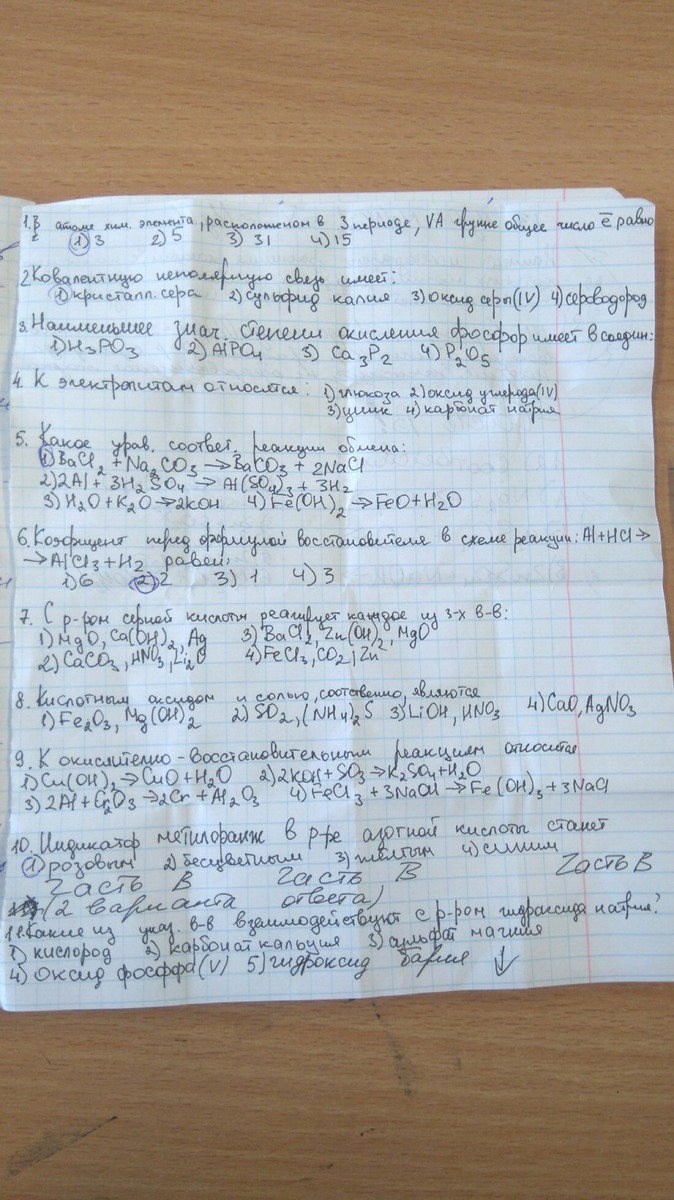 1. В атоме хим. элемента, расположеном в 3 периоде, VA группе общее число ē равно
1) 3 2) 5 3) 31 4) 15
2. Ковалентную неполярную связь имеет:
1) кристалл. сера 2) сульфид калия 3) оксид серы (IV) 4) сероводород
3. Наименьшее знач. степени окисления фосфор имеет в соедин:
1) H3PO3 2) AlPO4 3) Ca3P2 4) P2O5
4. К электролитам относится: 1) глюкоза 2) оксид углерода (IV)
3) цинк 4) карбонат натрия
5. Какое урав. соответ. реакции обмена:
1) BaCl2 + Na2CO3 → BaCO3 + 2NaCl
2) 2Al + 3H2SO4 → Al(SO4)3 + 3H2
3) H2O + K2O → 2KOH 4) Fe(OH)2 → FeO + H2O
6. Коэфицент перед формулой восстановителя в схеме реакции: Al + HCl →
→ AlCl3 + H2 равен:
1) 6 2) 2 3) 1 4) 3
7. С р-ром серной кислоты реагирует каждое из 3-х в-в:
1) MgO, Ca(OH)2, Ag 3) BaCl2, Zn(OH)2, MgO
2) CaCO3, HNO3, Li2O 4) FeCl3, CO2, Zn
8. Кислотным оксидом и солью, соотственно, являются
1) Fe2O3, Mg(OH)2 2) SO2, (NH4)2S 3) LiOH, HNO3 4) CaO, AgNO3
9. К окислително-восстановительным реакциям относится
1) Cu(OH)2 → CuO + H2O 2) 2KOH + SO3 → K2SO4 + H2O
3) 2Al + Cr2O3 → 2Cr + Al2O3 4) FeCl3 + 3NaOH → Fe(OH)3 + 3NaCl
10. Индикатор метилоранж в р-ре азотной кислоты станет
1) розовым 2) бесцветным 3) жёлтым 4) синим
Часть В Часть В Часть В
(2 варианта ответа)
11. Какие из указ. в-в взаимодействуют с р-ром гидроксида натрия?
1) кислород 2) карбонат кальция 3) сульфат магния
4) оксид фосфора (V) 5) гидроксид бария ↓